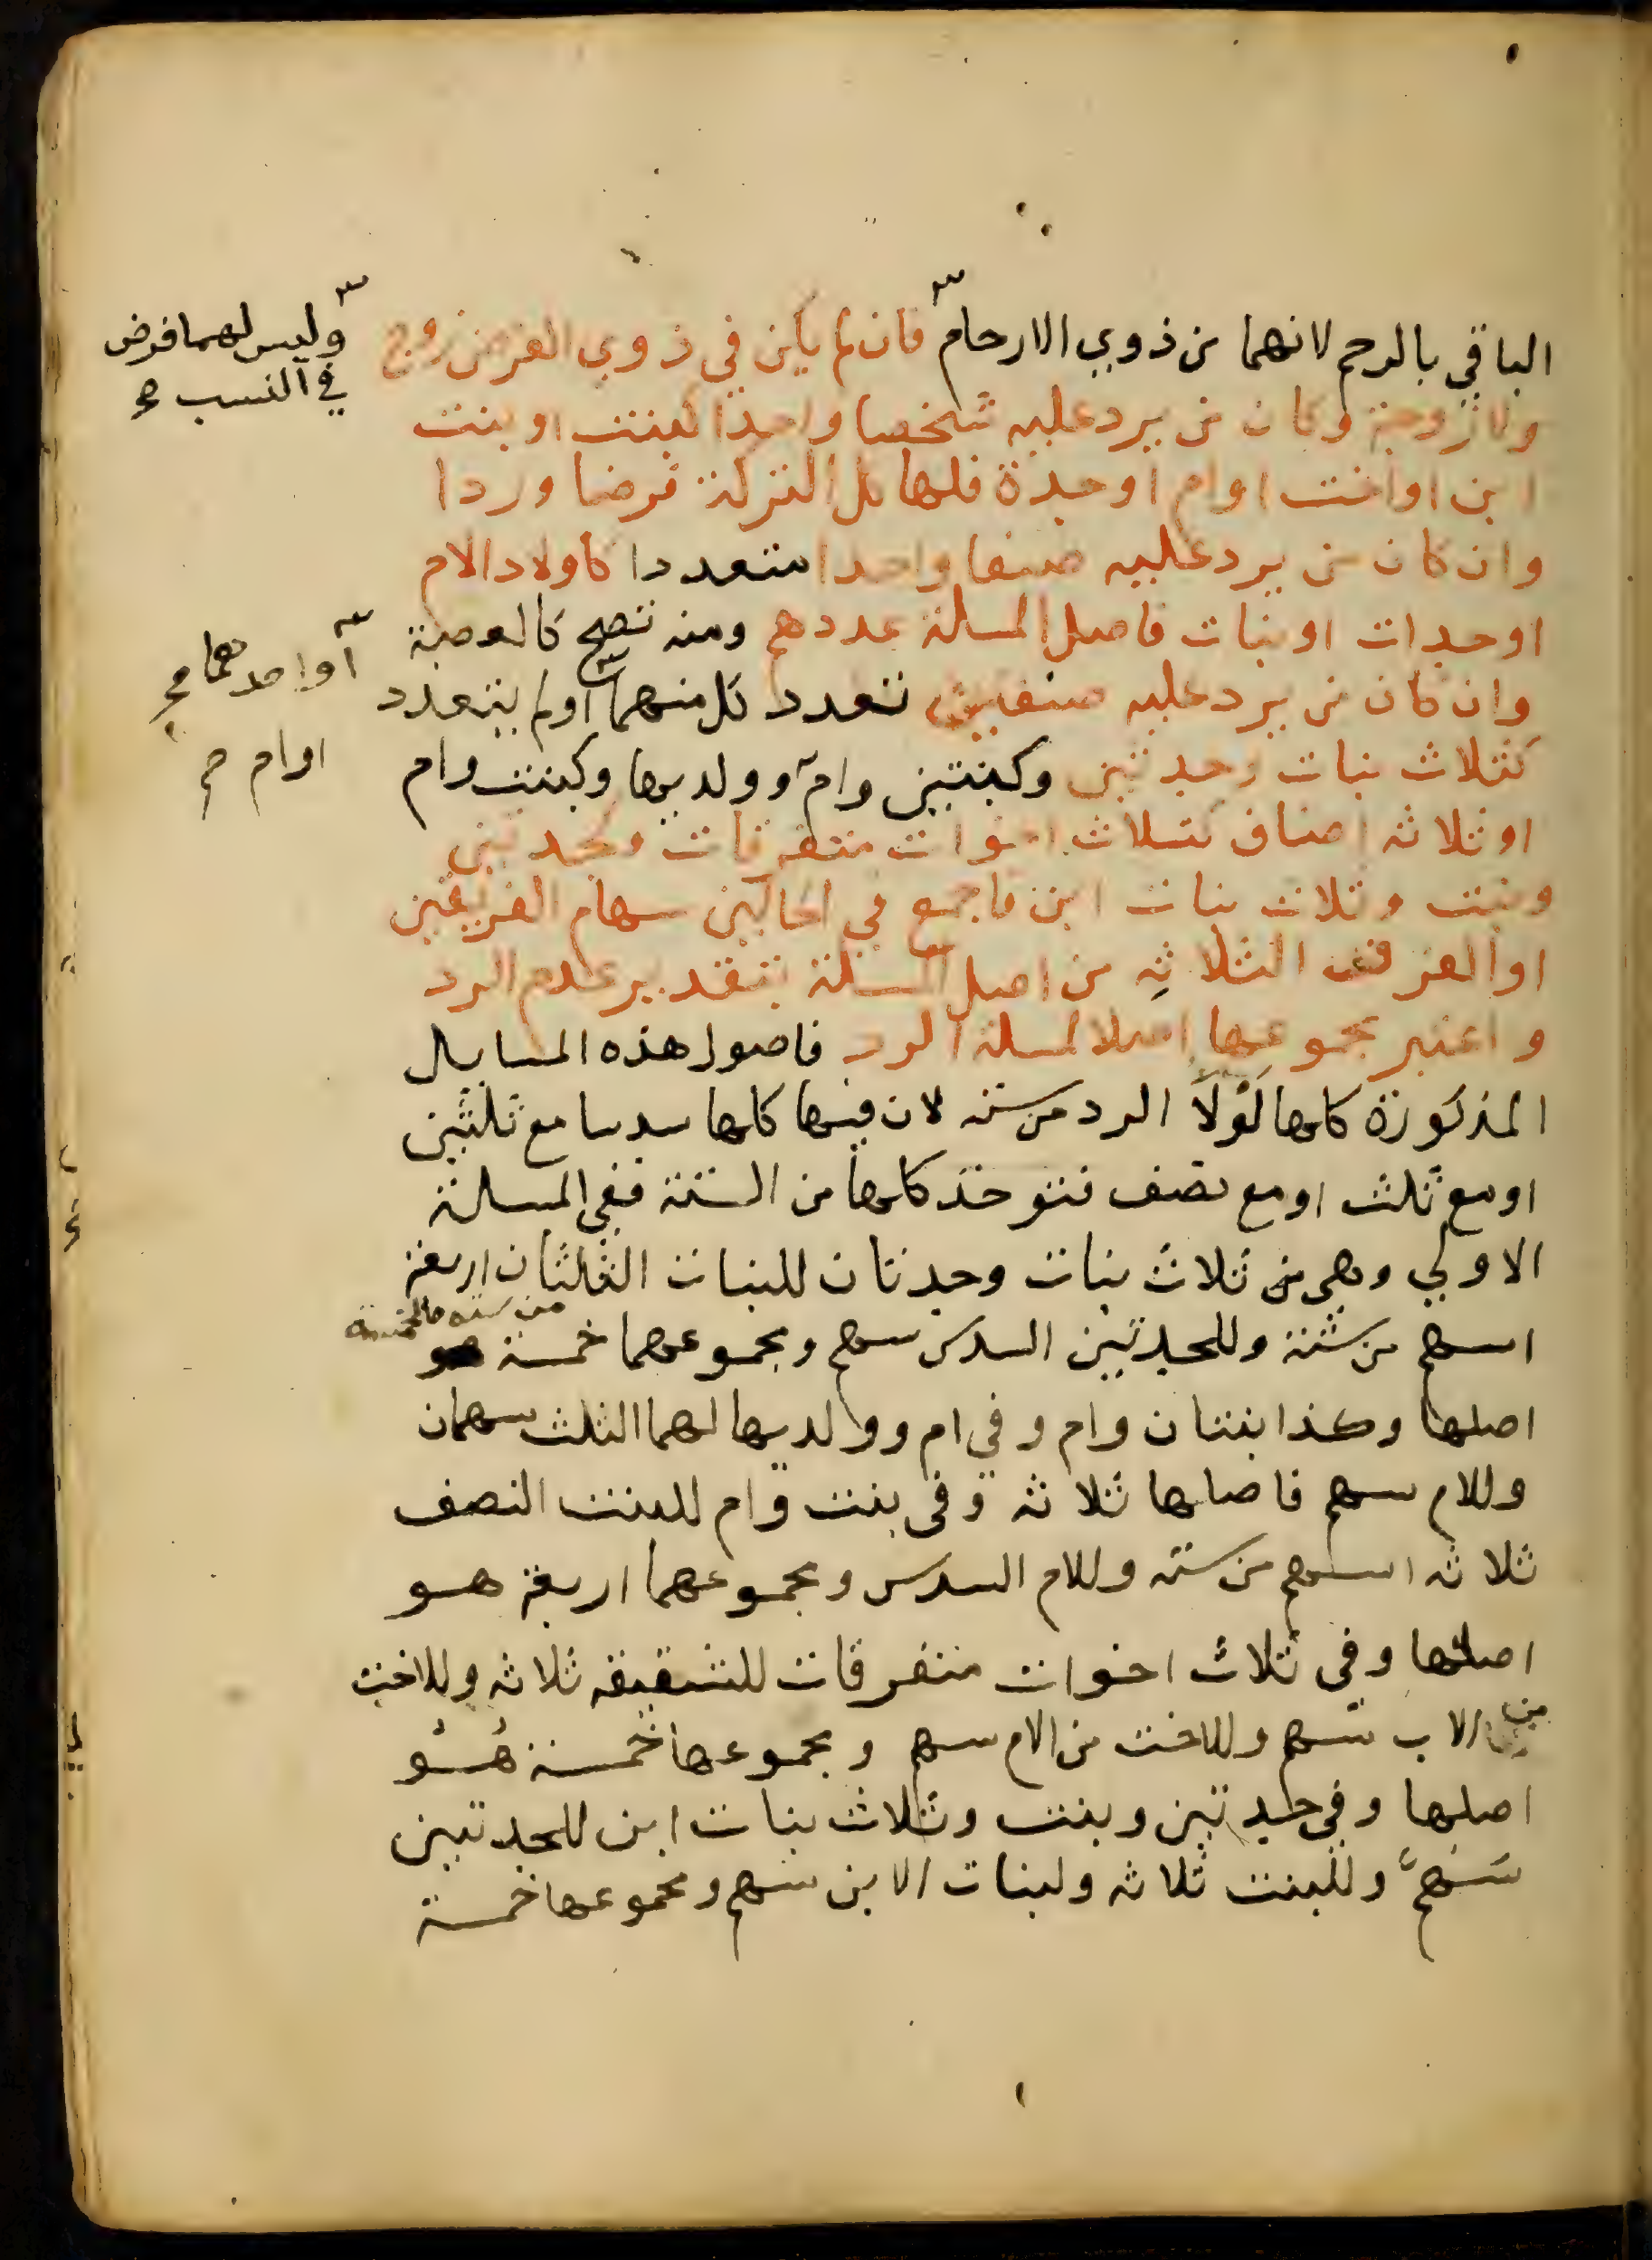 الباقي بالرحم لانهما من ذوي الارحام فان لم يكن في ذوي الفرض زوج
وليس لهما فرض
في النسب صح
ولا زوجة وكان من يرد عليه شخصا واحدا كبنت او بنت
ابن او اخت او ام او جدة فلها كل التركة فرضا وردا
وان كان من يرد عليه صنفا واحدا متعددا كاولاد الام
او جدات او بنات فاصل المسلة عددهم ومنه تصح كالعصبة
او احدهما صح
وان كان من يرد عليه صنفين تعدد كل منهما او لم يتعدد
كثلاث بنات وجدتين وكبنتين وام وولديها وكبنت وام
او ام صح
او ثلاثه اصناف كثلاث اخوات متفرقات وجدتين
وبنت وثلاث بنات ابن فاجمع في الحالين سهام الفريقين
او الفرق الثلاثه من اصل المسلة بتقدير عدم الرد
واعتبر مجموعها اصلا لمسلة الرد فاصول هذه المسايل
المذكورة كلها لولا الرد من سته لان فيها كلها سدسا مع ثلثين
او مع ثلث او مع نصف فتوخذ كلها من الستة ففي المسلة
الاولي وهي من ثلاث بنات وجدتان للبنات الثلثان اربعة
اسهم من ستة وللجدتين السدس سهم ومجموعهما خمسة هو
من سته فالخمسة
اصلها وكذا بنتان وام وفي ام وولديها لهما الثلث سهمان
وللام سهم فاصلها ثلاثه وفي بنت وام للبنت النصف
ثلاثه اسهم من سته وللام السدس ومجموعهما اربعة هو
اصلها وفي ثلاث اخوات متفرقات للشقيقه ثلاثه وللاخت
من الاب سهم وللاخت من الام سهم ومجموعها خمسة هو
اصلها وفي جدتين وبنت وثلاث بنات ابن للجدتين
سهم وللبنت ثلاثه ولبنات الابن سهم ومجموعها خمسة